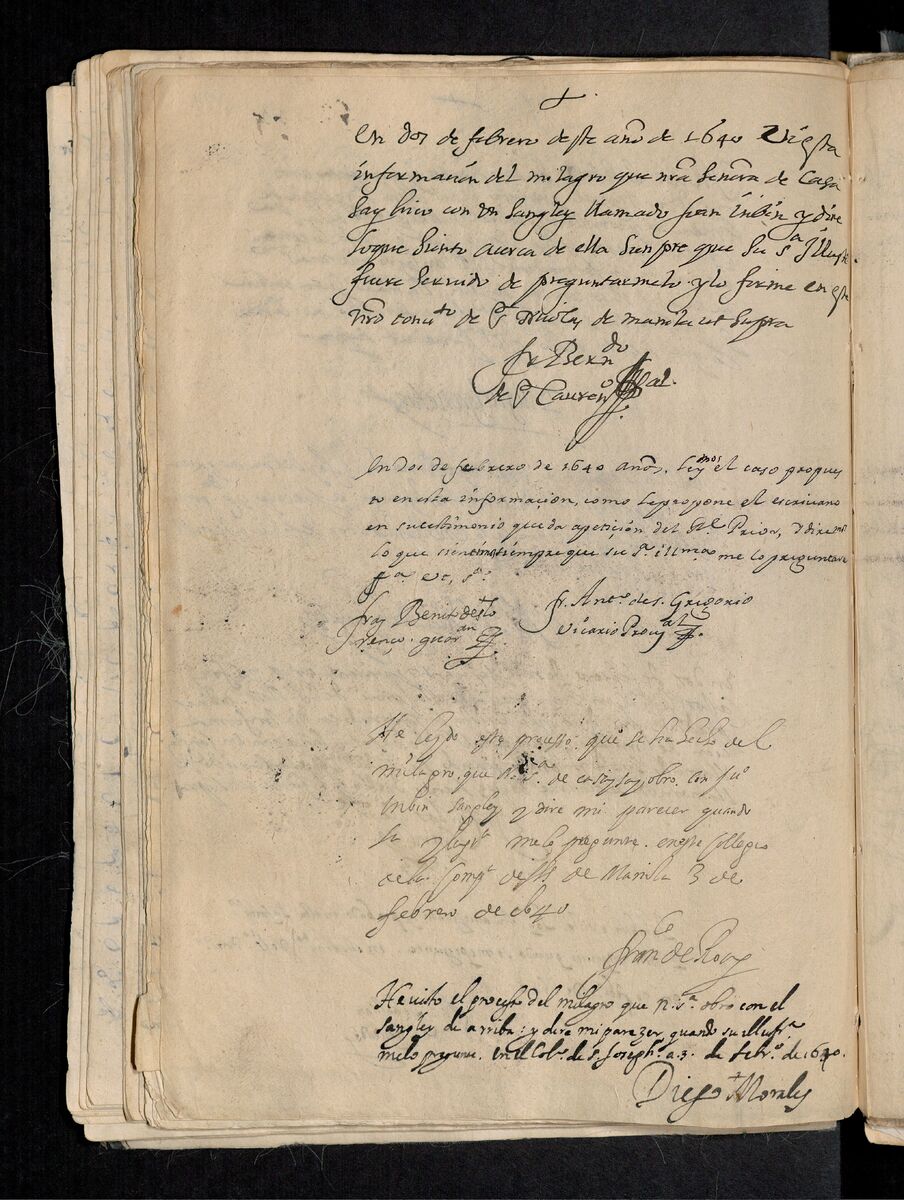 En dos de febrero deste año de 1640 Vi esta
informacion del milagro que nrā Señora de Casa
say hico con un Sangley llamado Juan inbin y dire
lo que siento acerca de ella siempre que su Sª Illustr.
fuere servido de preguntarmelo. y lo firme en este
nrō convto de S. Nicolas de manila ut supra
fr Berndo
de S Laurenº
En dos de febrero de 1640 años. leymos el caso propues
to en esta informacion, como le propone el escrivano
en su testimonio que da apetiçion del Pe. Prior, y diremos
lo que sientimos siempre que su Sª. illma me lo preguntare
fª. ut, sª.
fray Benito de S. Lo
renço. guardan
fr. Antº. de S. Grigorio
Vicario Proval
He leydo este processo que se ha hecho del
milagro. que Nª. Sª. de casaysay obro. con juº
Inbin sangley y dire mi parecer quando
su yllustª melo pregunte. en este Collegio
de la Compª de Js. de Manila 3 de
febrero de 1640
franco de Roa
He visto el processo del milagro que Nª. Sª. obro con el
sangley de arriba: y dire mi parezer, quando su illustª.
melo pregunte. en el Colº. de S. Joseph. a 3. de febrº. de 1640.
Diego Morales